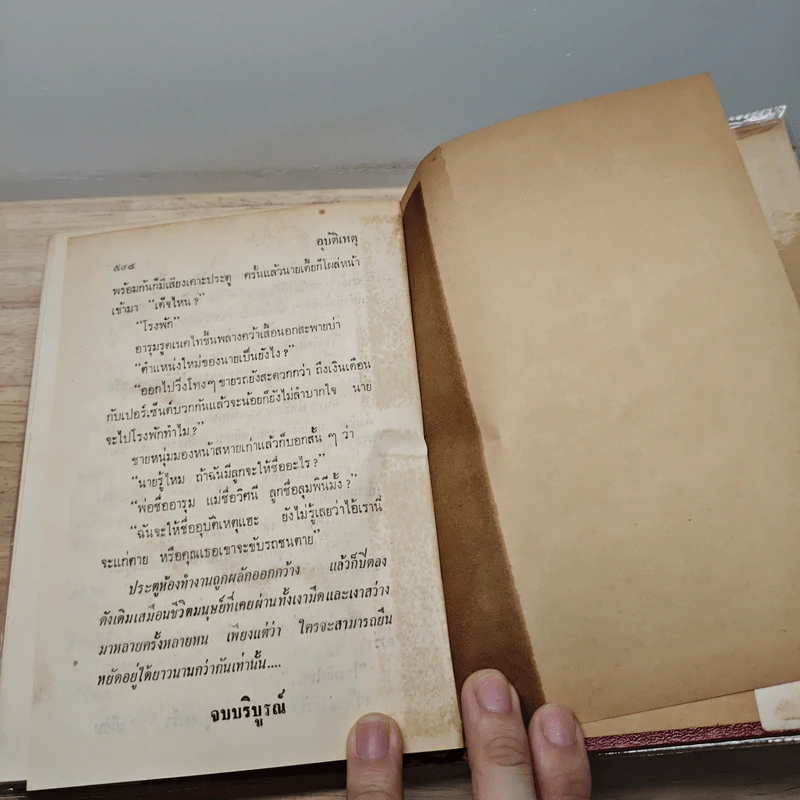 อุบัติเหตุ
๕๔๕
พร้อมกันก็มีเสียงเคาะประตู ครั้นแล้วนายเตี้ยก็โผล่หน้า
เข้ามา “เด็จไหน?”
“โรงพัก”
อารุมรูดเนคไทขึ้นพลางคว้าเสื้อนอกสะพายบ่า
“ตำแหน่งใหม่ของนายเป็นยังไง?”
“ออกไปวิ่งโทงๆ ขายรถยังสะดวกกว่า ถึงเงินเดือน
กับเปอร์เซ็นต์บวกกันแล้วจะน้อยก็ยังไม่ลำบากใจ นาย
จะไปโรงพักทำไม?”
ชายหนุ่มมองหน้าสหายเก่าแล้วก็บอกสั้น ๆ ว่า
“นายรู้ไหม ถ้าฉันมีลูกจะให้ชื่ออะไร?”
“พ่อชื่ออารุม แม่ชื่อวิศนี ลูกชื่อลุมพินีมั้ง?”
“ฉันจะให้ชื่ออุบัติเหตุแฮะ ยังไม่รู้เลยว่าไอ้เรานี่
จะแก่ตาย หรือคุณเธอเขาจะขับรถชนตาย”
ประตูห้องทำงานถูกผลักออกกว้าง แล้วก็ปิดลง
ดังเดิมเสมือนชีวิตมนุษย์ที่เคยผ่านทั้งเงามืดและเงาสว่าง
มาหลายครั้งหลายหน เพียงแต่ว่า ใครจะสามารถยืน
หยัดอยู่ได้ยาวนานกว่ากันเท่านั้น....
จบบริบูรณ์